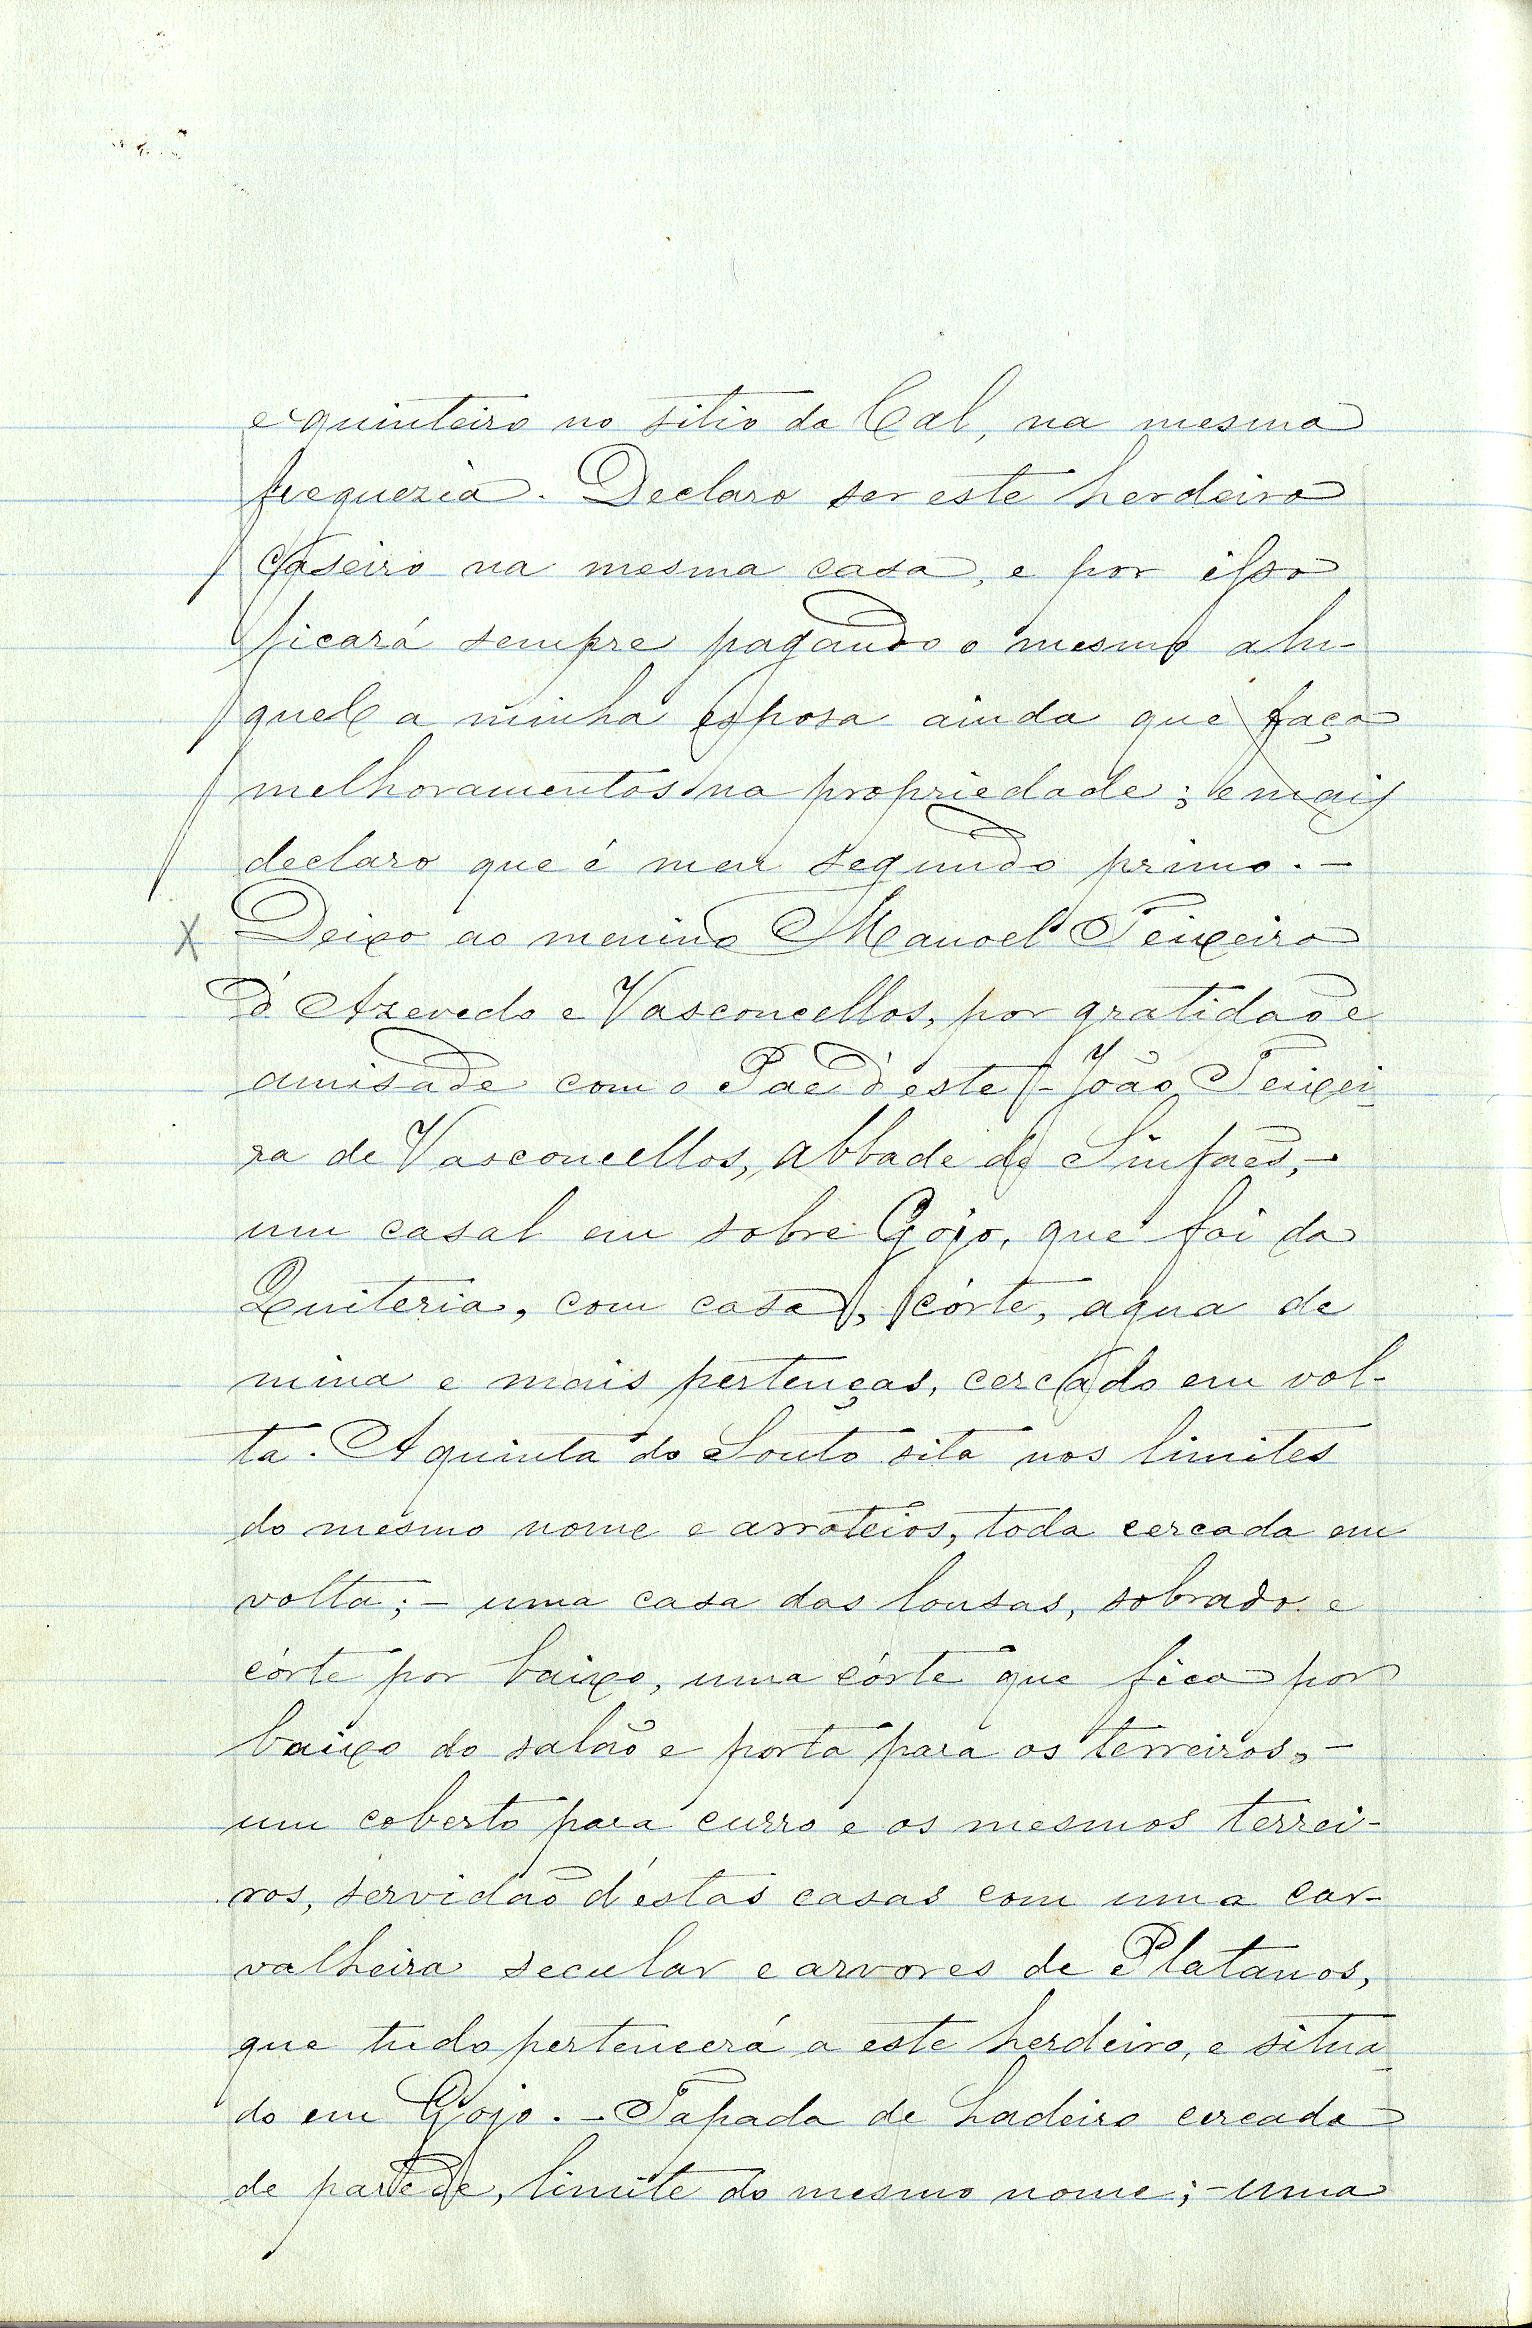 e quinteiro no sitio da Cal, na mesma
freguezia. Declaro ser este herdeiro
caseiro na mesma casa, e por isso
ficará sempre pagando o mesmo alu-
guel a minha esposa ainda que faça
melhoramentos na propriedade; e mais
declaro que é meu segundo primo. -
X Deixo ao menino Manoel Teixeira
d'Azevedo e Vasconcellos, por gratidão e
amisade com o Pae d'este - João Teixei-
ra de Vasconcellos, abbade de Sinfaes, -
um casal em sobre Gojo, que foi da
Quiteria, com casa, córte, agua de
mina e mais pertenças, cercado em vol-
ta. A quinta do Souto sita nos limites
do mesmo nome e arroteios, toda cercada em
volta; - uma casa das lousas, sobrado e
córte por baixo, uma córte que fica por
baixo do salão e porta para os terreiros, -
um coberto para curro e os mesmos terrei-
ros, servidão d'estas casas com uma car-
valheira secular e arvores de Platanos,
que tudo pertencerá a este herdeiro, e situa-
do em Gojo. - Tapada de Ladeiro cercada
de parede, limite do mesmo nome; - uma